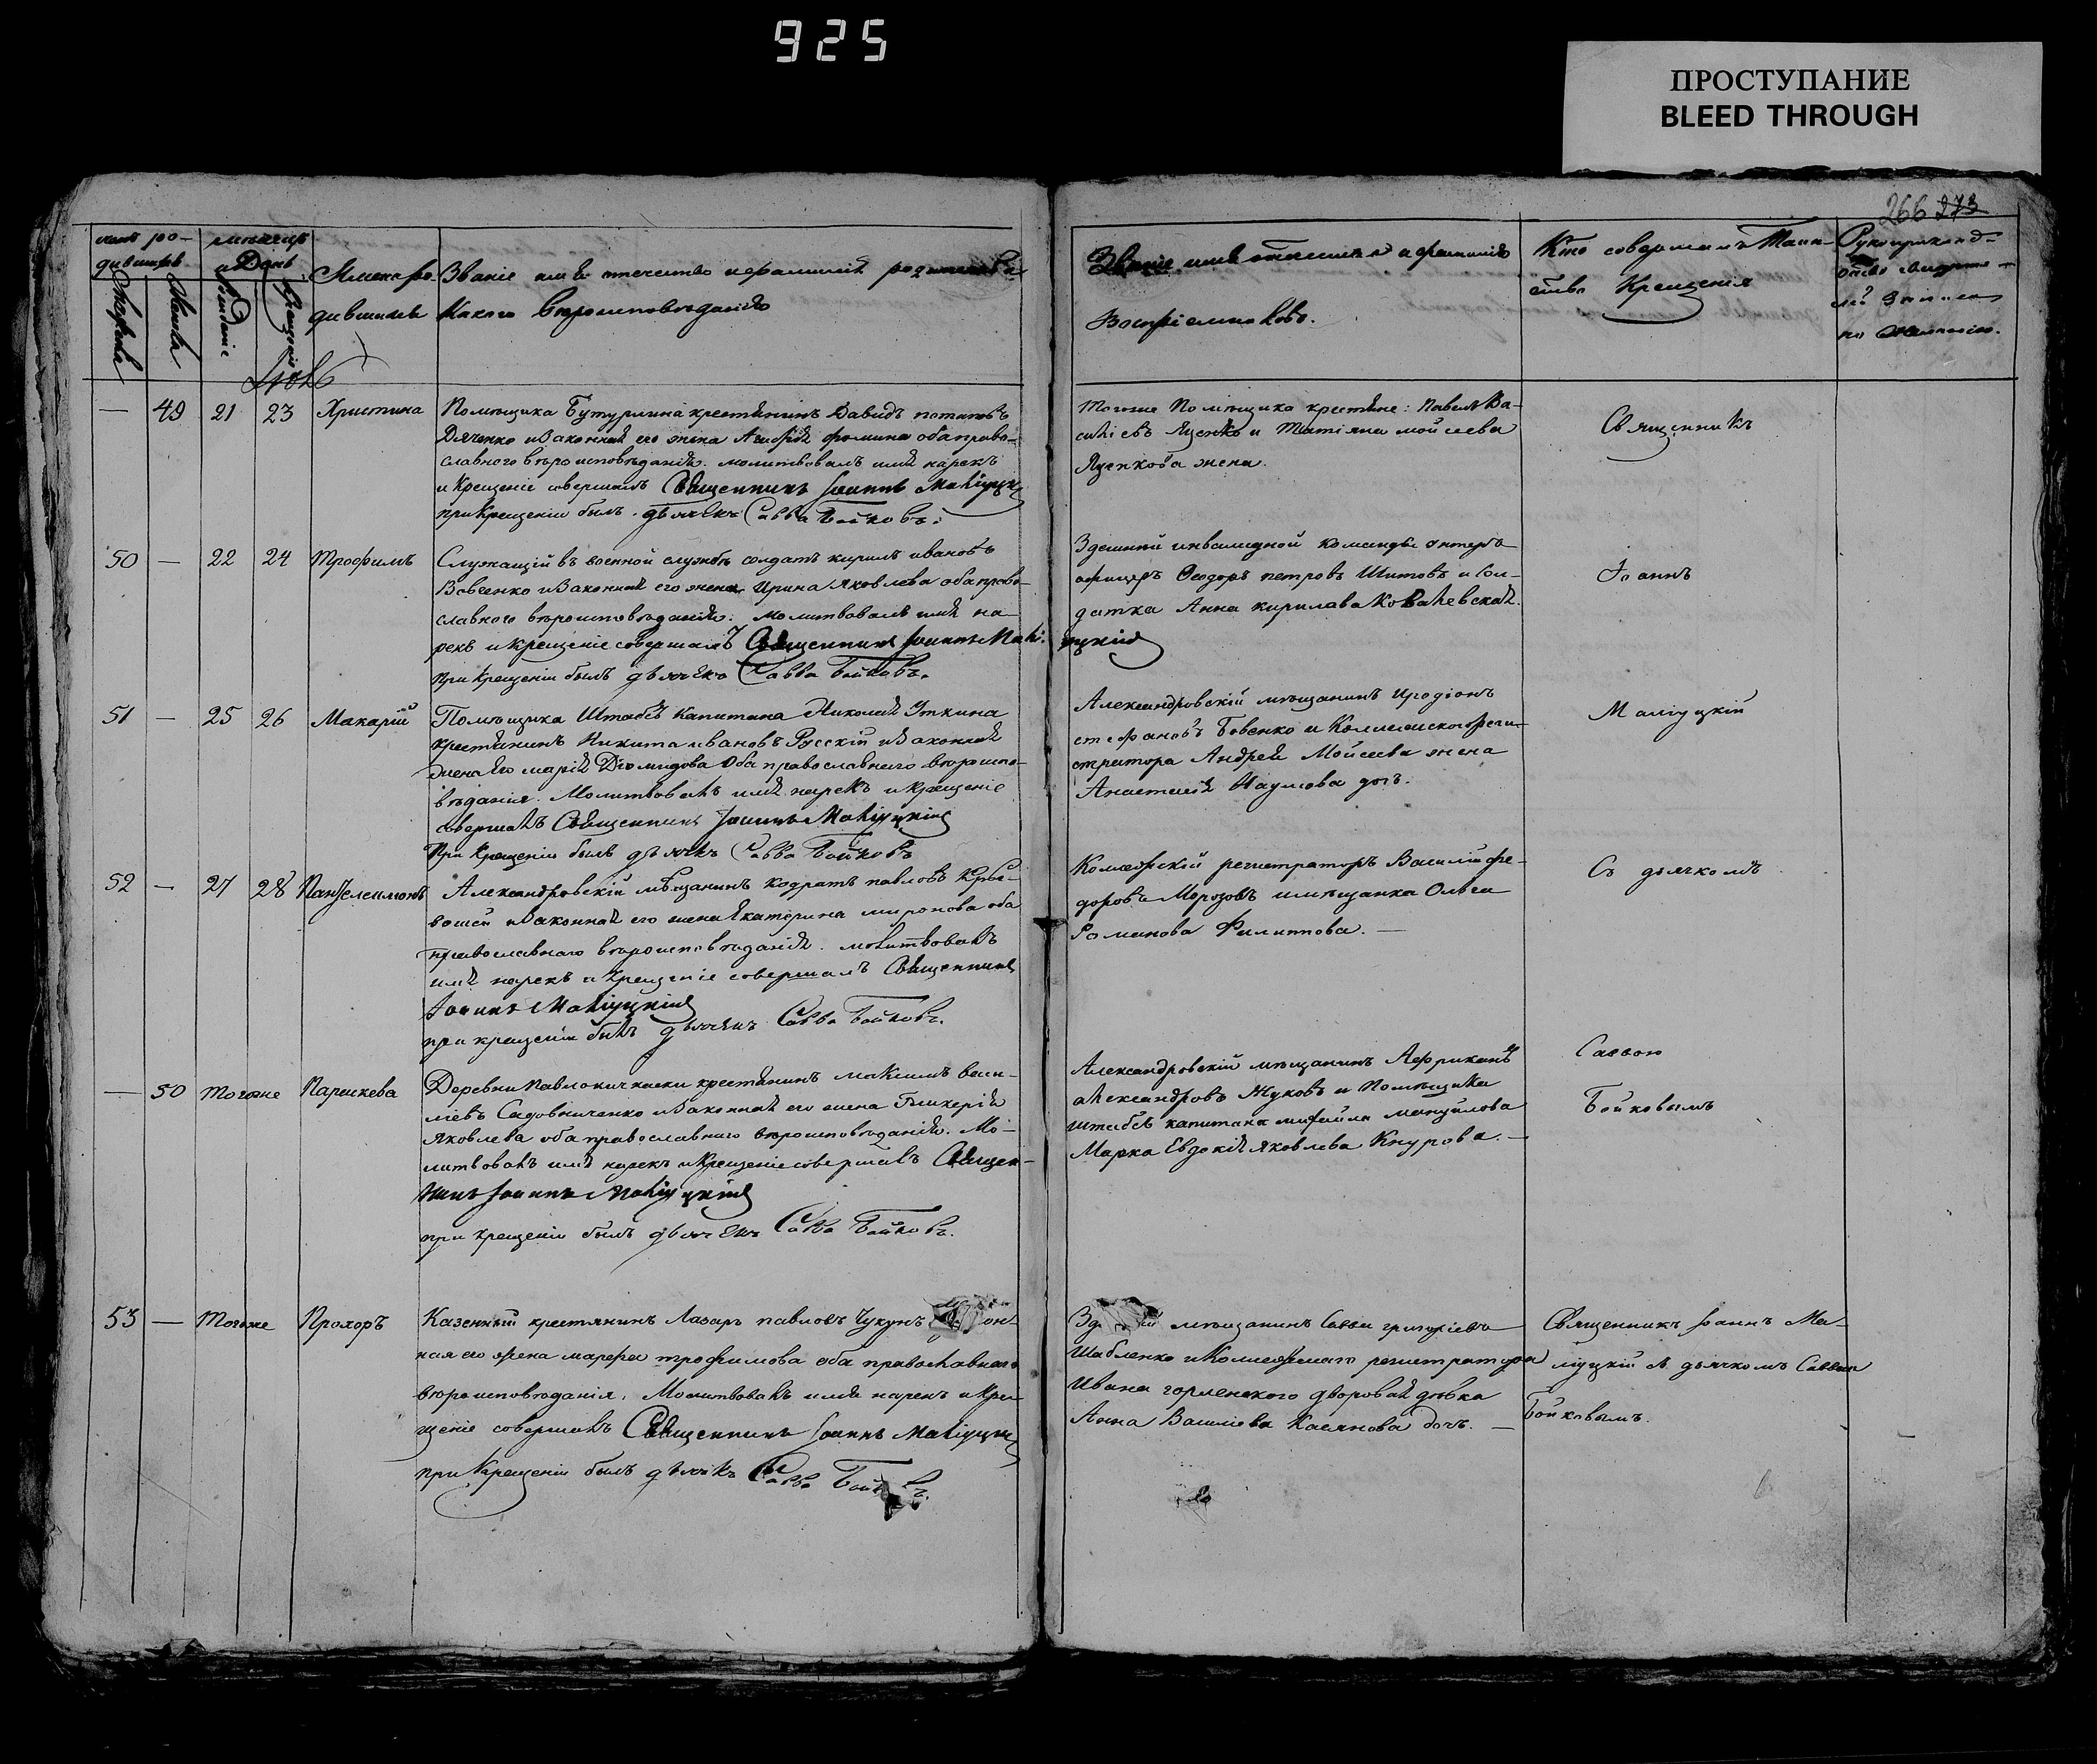 925
ПРОСТУПАНИЕ
BLEED THROUGH
266 273
месяцъ
День
Званіе имя отечество и фамилія
Какого вѣроисповѣданія
Званіе имя отечество и фамилія
Воспріемниковъ.
Кто совершалъ Таин-
ство Крещенія
по желанію.
Іюль
— 49 21 23 Христина
Помѣщика Бутурлина крестьянинъ Давидъ потаповъ
Дяченко и законная его жена фомина оба право-
славнаго вѣроисповѣданія. молитвовалъ имя нарекъ
и Крещеніе совершалъ Священникъ Іоаннъ Маліуцкій
при Крещеніи былъ дьячекъ Савва Бойковъ.
Тогоже Помѣщика крестьяне: Павелъ Ва-
силіевъ Яценко и Татіяна мойсеева
Яценкова жена.
Священникъ
50 — 22 24 Трофимъ
Служащій въ военной службѣ солдатъ кирилъ ивановъ
Вовченко и законная его жена Ирина Яковлева оба право-
славнаго вѣроисповѣданія. молитвовалъ имя на-
рекъ и крещеніе совершалъ Священникъ Іоаннъ Маліуцкій
при Крещеніи былъ дьячекъ Савва Бойковъ.
Здешней инвалидной команды унтеръ-
офицеръ Феодоръ петровъ Шитовъ и сол-
датка Анна кирилова Ковалевская.
Іоаннъ
51 — 25 26 Макарій
Помѣщика Штабсъ Капитана Николая Уткина
крестьянинъ Никита ивановъ Русскій и законная
жена его марія Діомидова оба православнаго вѣроиспо-
вѣданія. Молитвовалъ имя нарекъ и крещеніе
совершалъ Священникъ Іоаннъ Маліуцкій
При Крещеніи былъ дьячекъ Савва Бойковъ
Александровскій мѣщанинъ Иродіонъ
стефановъ Бовенко и Коллежскаго реги-
стратора Андрея Мойсеева жена
Анастасія Наумова дочь.
Маліуцкій
52 — 27 28 Пантелеимонъ
Александровскій мѣщанинъ кодратъ павловъ
и законная его жена Екатерина миронова оба
православнаго вѣроисповѣданія. молитвовалъ
имя нарекъ и крещеніе совершалъ Священникъ
Іоаннъ Маліуцкій
при крещеніи былъ дьячекъ Савва Бойковъ.
Коллежскій регистраторъ Василій фе-
доровъ Морозовъ и мѣщанка Ольга
Романова Филиппова. —
Съ дьячкомъ
— 50 тогоже Параскева
Деревни крестьянинъ максимъ васи-
ліевъ Садовниченко и законная его жена Гликерія
Яковлева оба православнаго вѣроисповѣданія. Мо-
литвовалъ имя нарекъ и крещеніе совершалъ Священ-
никъ Іоаннъ Маліуцкій
при крещеніи былъ дьячекъ Савва Бойковъ.
Александровскій мѣщанинъ Африканъ
александровъ Жуковъ и Помѣщика
штабсъ капитана михайла мануйлова
Марка Евдокія яковлева Кнурова. —
Саввою
Бойковымъ
53 — тогоже Прохоръ
Казенный крестьянинъ Лазарь павловъ Чукунъ
ная его жена марфа трофимова оба православнаго
вѣроисповѣданія. Молитвовалъ имя нарекъ и кре-
щеніе совершалъ Священникъ Іоаннъ Маліуцкій
при Крещеніи былъ дьячекъ Савва
мѣщанинъ Савва григоріевъ
Шабленко и Коллежскаго регистратора
Ивана горленскаго дворовая дѣвка
Анна Василіева Касянова дочь. —
Священникъ Іоаннъ Ма-
ліуцкій съ дьячкомъ Саввою
Бойковымъ.